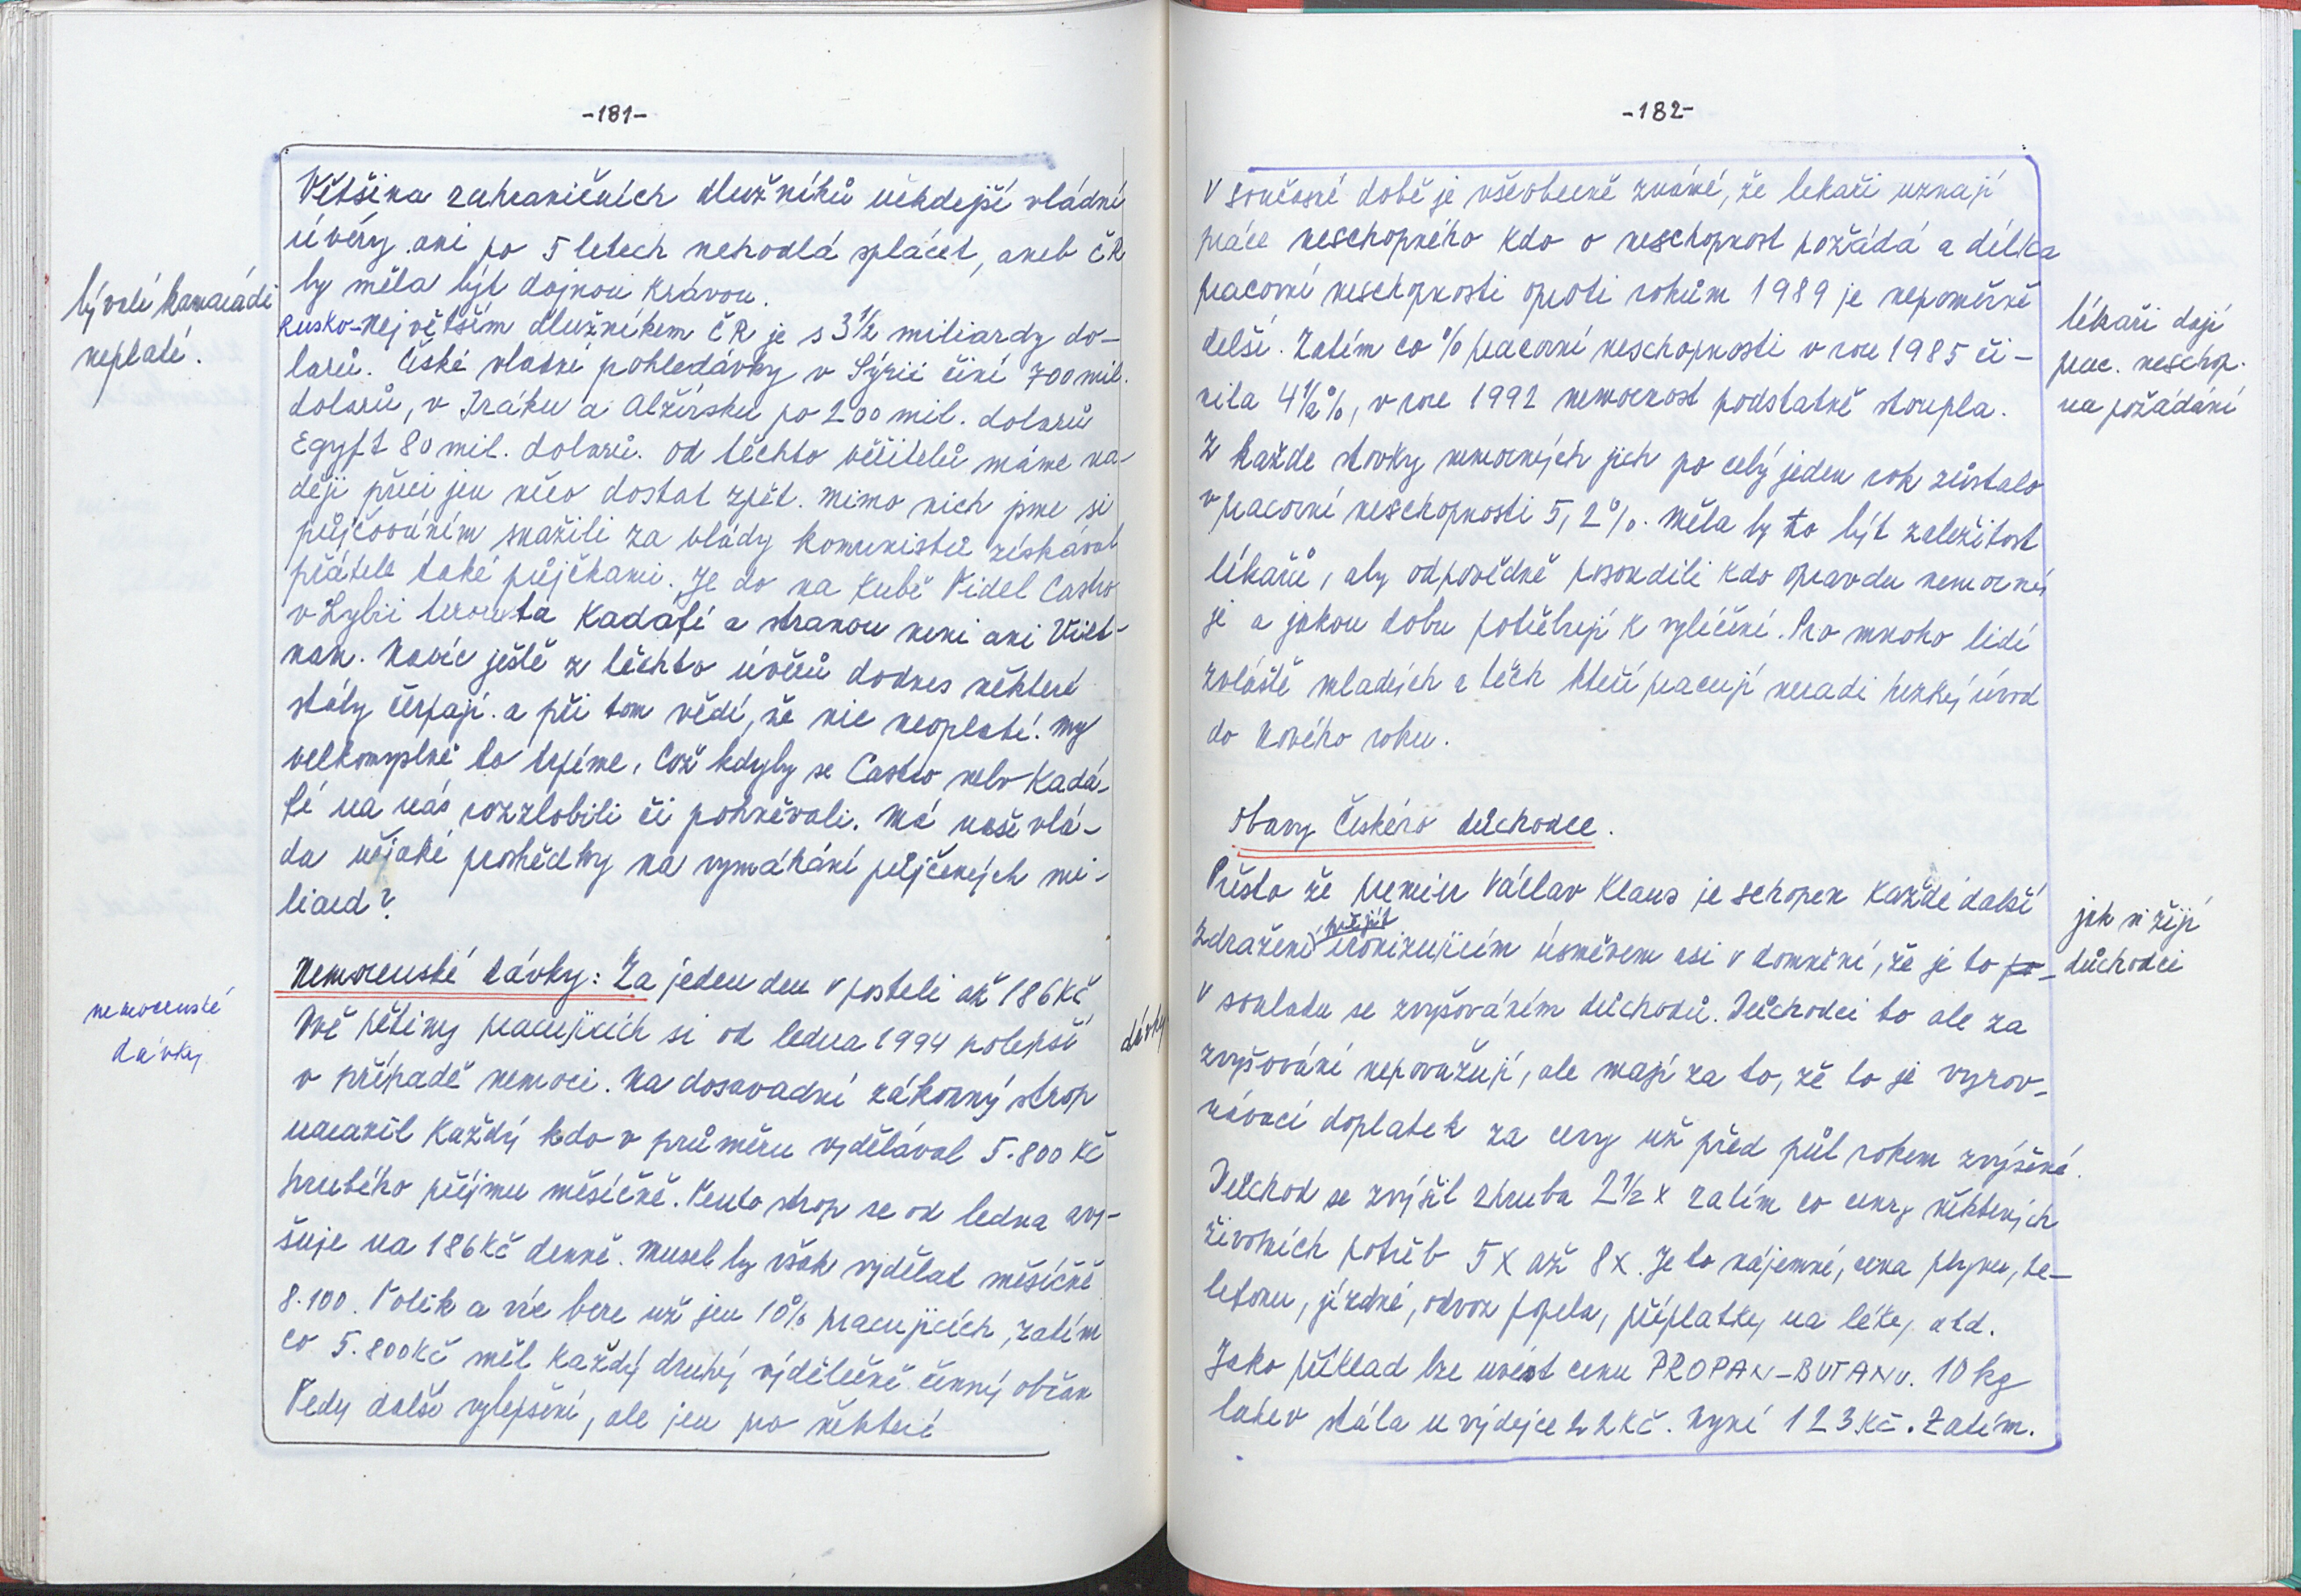 -181-
bývalí kamarádi
neplatí.
Většina zahraničních dlužníků někdejší vládní
úvěry ani po 5 letech nehodlá splácet, aneb ČR
by měla být dojnou krávou.
Rusko-největším dlužníkem ČR je s 3½ miliardy do-
larů. České vládní pohledávky v Sýrii činí 700 mil.
dolarů, v Iráku a Alžírsku po 200 mil. dolarů
Egypt 80 mil. dolarů. Od těchto věřitelů máme na-
ději přeci jen něco dostat zpět. Mimo nich jsme si
půjčováním snažili za vlády komunistů získávat
přátele také půjčkami. Je to na Kubě Fidel Castro
v Lybii terorista Kadafí a stranou není ani Viet-
nam. Navíc ještě z těchto úvěrů dodnes některé
státy čerpají. a při tom vědí, že nic neoplatí. My
velkomyslně to trpíme, Což kdyby se Castro nebo Kadá-
fí na nás rozzlobili či pohněvali. Má naše vlá-
da nějaké prostředky na vymáhání půjčených mi-
liard?
nemocenské
dávky
Nemocenské dávky: Za jeden den v posteli až 186 Kč
Dvě pětiny pracujících si od ledna 1994 polepší
v případě nemoci. Na dosavadní zákonný strop
narazil každý kdo v průměru vydělával 5.800 Kč
hrubého příjmu měsíčně. Tento strop se od ledna zvy-
šuje na 186 Kč denně. Musel by však vydělat měsíčně
8.100. Tolik a víc bere už jen 10% pracujících, zatím
co 5.800 Kč měl každý druhý výdělečně činný občan
Tedy další vylepšení, ale jen pro některé
dávky
-182-
V součásné době je všeobecně známé, že lekaři uznají
práce neschopného kdo o neschopnost požádá a délka
pracovní neschopnosti oproti rokům 1989 je nepoměrně
delší. Zatím co % pracovní neschopnosti v roce 1985 či-
nila 4½%, v roce 1992 nemocnost podstatně stoupla.
Z každe stovky nemocných jich po celý jeden rok zůstalo
v pracovní neschopnosti 5,2%. Měla by to být zaležitost
lékařů, aby odpovědně posoudili kdo opravdu nemocný
je a jakou dobu potřebují k vyléčení. Pro mnoho lidí
zvláště mladých a těch kteří pracují neradi hezký úvod
do Nového roku.
lékaři dají
prac. neschop.
na požádání
Obavy Českého důchodce.
Přesto že premier Václav Klaus je schopen každé další
zdražení přejít ironizujícím úsměvem asi v domnění, že je to po-
v souladu se zvyšováním důchodů. Důchodci to ale za
zvyšování nepovažují, ale mají za to, že to je vyrov-
návací doplatek za ceny už před půl rokem zvýšené.
Důchod se zvýšil zhruba 2½ x zatím co ceny některých
životních potřeb 5 x až 8 x. Je to nájemné, cena plynu, te-
lefonu, jízdné, odvoz popela, příplatky na léky atd.
Jako příklad lze uvést cenu PROPAN-BUTANU. 10 kg
lahev stála u výdejce 22 Kč. Nyní 123 Kč. Zatím.
jak si žijí
důchodci